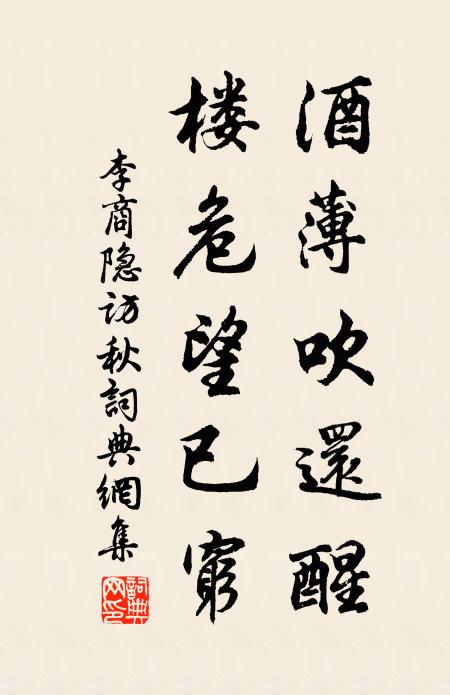 酒薄吹還醒
楼危望已窮
李商隐访秋詞典網集
詞典
网印